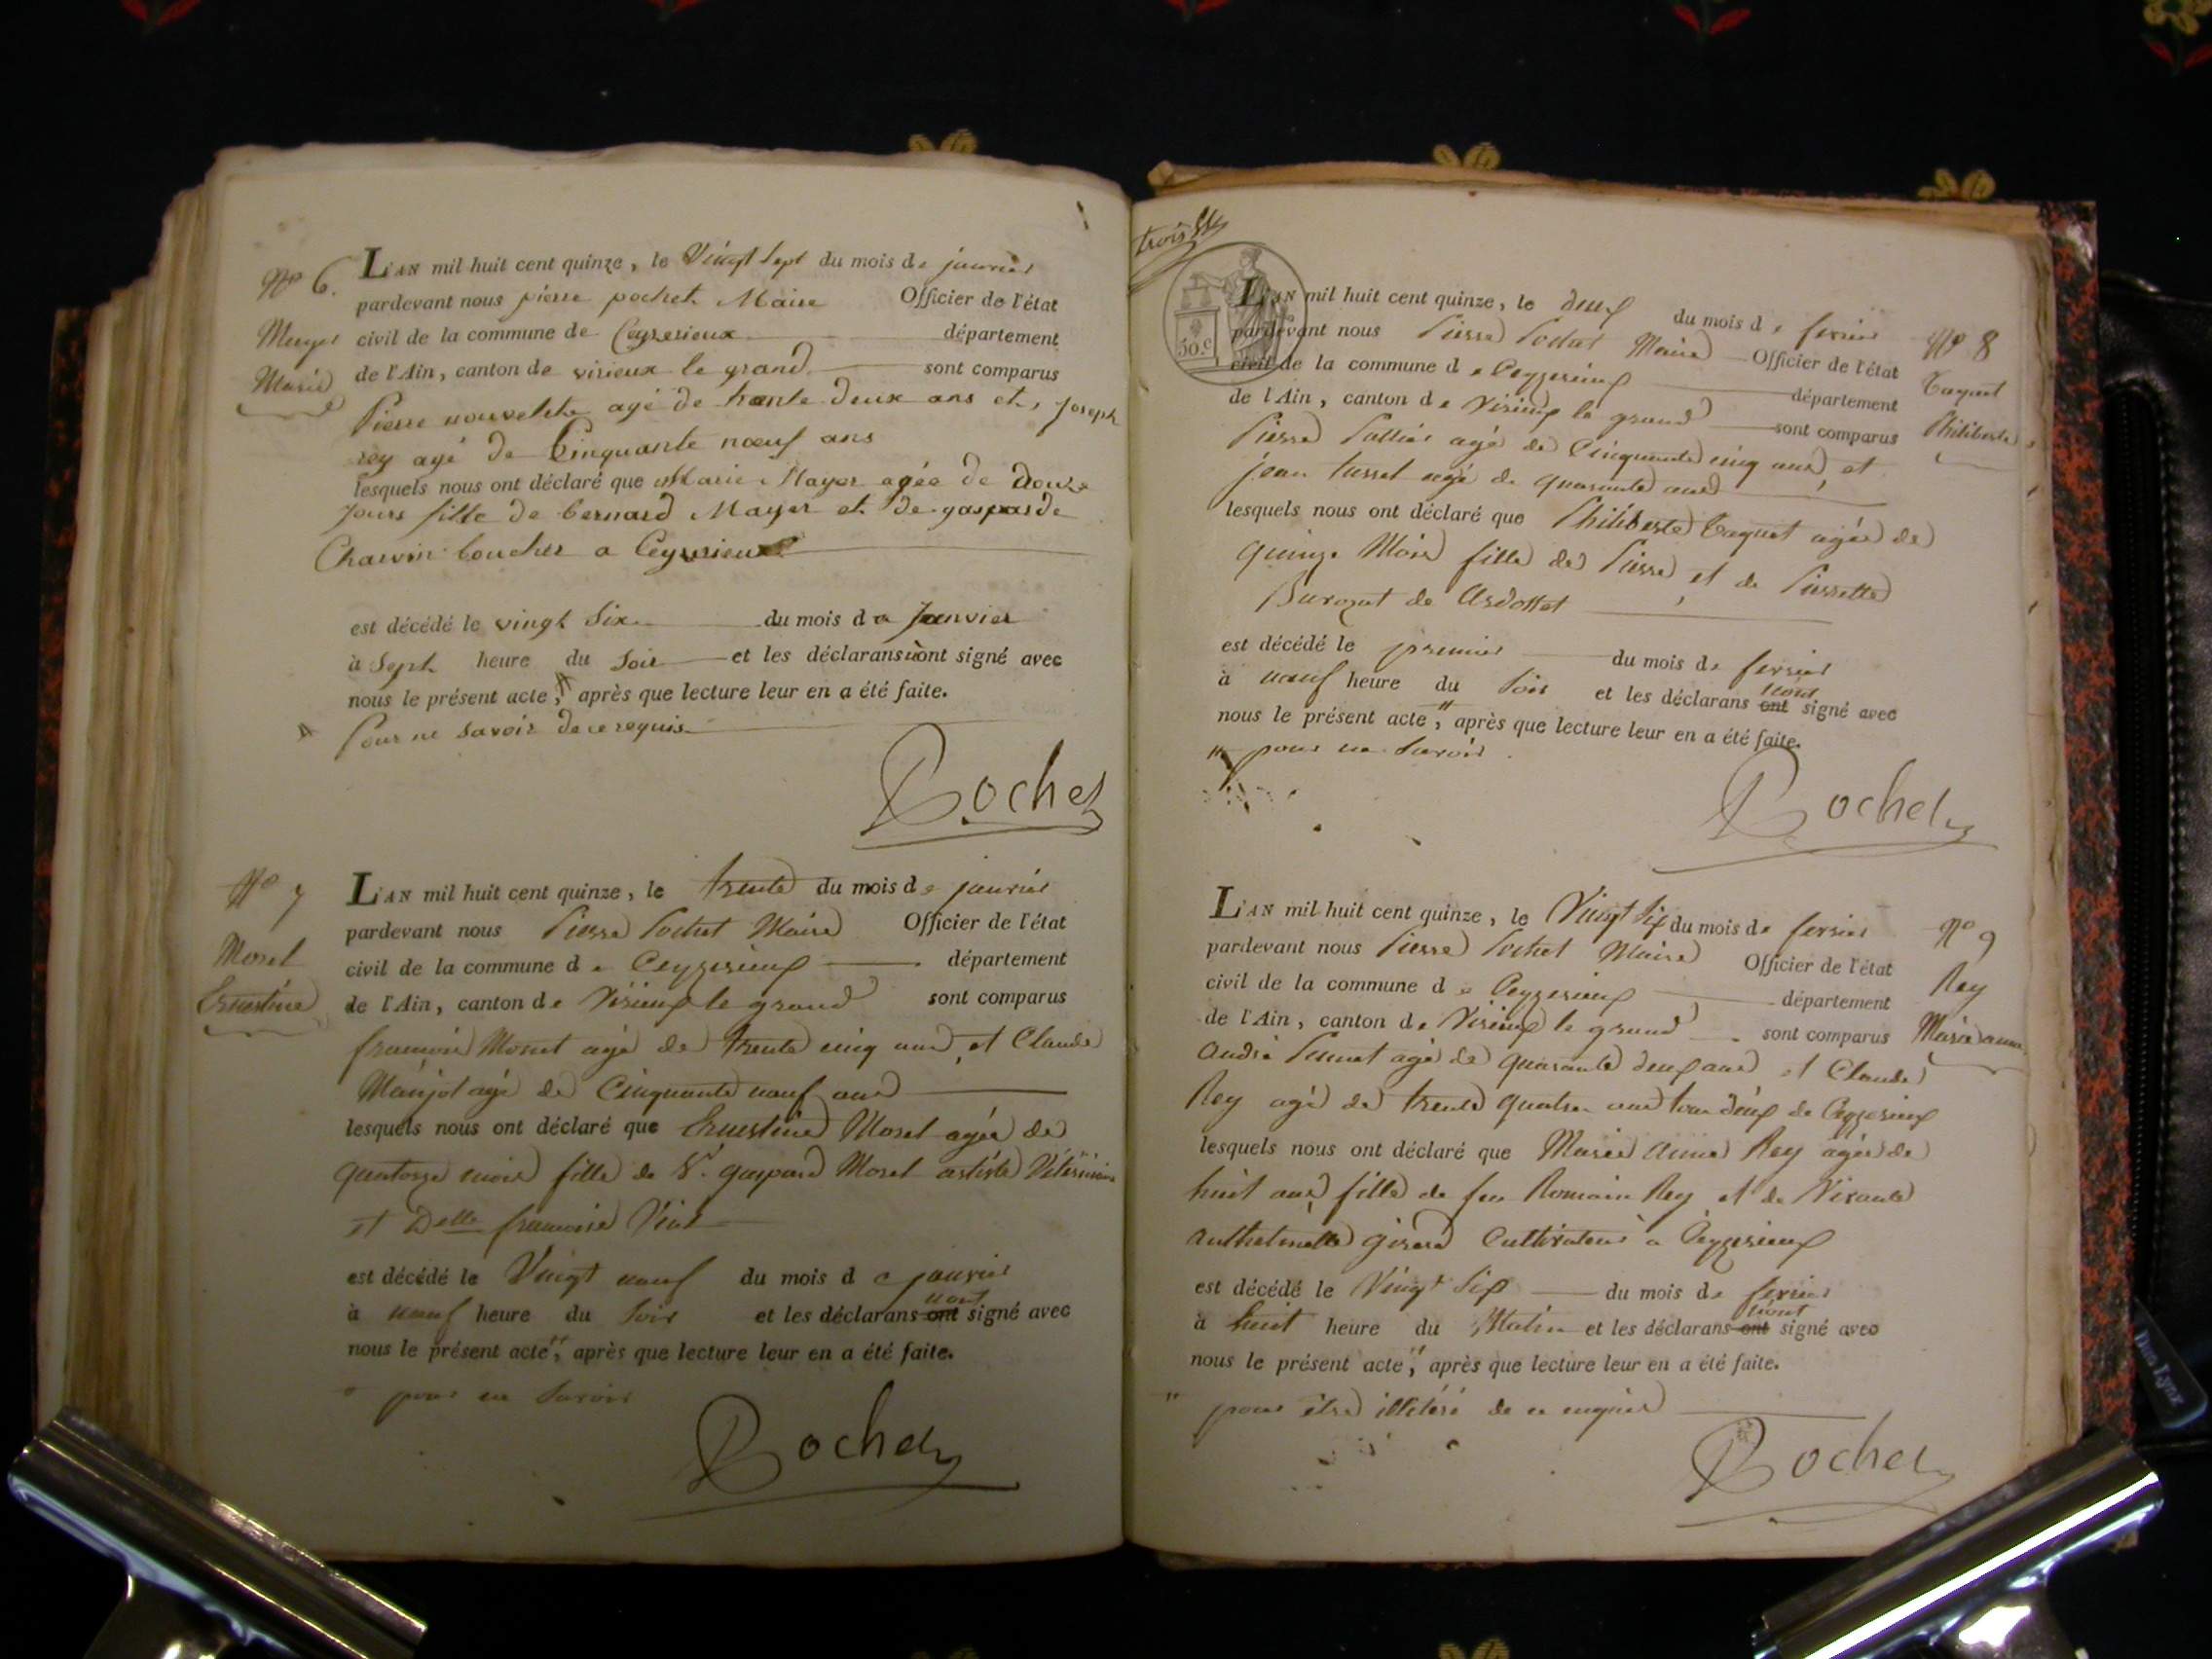 N° 6.
Mayer
Marie
L'AN mil huit cent quinze, le Vingt Sept du mois de janvier
pardevant nous pierre pochet Maire Officier de l'état
civil de la commune de Ceyzerieux département
de l'Ain, canton de virieux le grand sont comparus
Pierre agé de trente deux ans et Joseph
rey agé de Cinquante nœuf ans
lesquels nous ont déclaré que Marie Mayer agée de Douze
Jours fille de bernard Mayer et de gasparde
Charvin boucher a Ceyzerieux
est décédé le vingt Six du mois de Janvier
à Sept heure du Soir et les déclarans nont signé avec
nous le présent acte, après que lecture leur en a été faite.
Pour ne savoir de ce requis
Pochet
N° 7
Morel
Ernestine
L'AN mil huit cent quinze, le trente du mois de janvier
pardevant nous Pierre Pochet Maire Officier de l'état
civil de la commune de Ceyzerieux département
de l'Ain, canton de Virieux le grand sont comparus
françois Monet agé de trente cinq ans, et Claude
agé de Cinquante nœuf ans
lesquels nous ont déclaré que Ernestine Morel agée de
quatorze mois fille de Sr. gaspard Morel artiste Vétérinaire
et Delle françoise
est décédé le Vingt nœuf du mois de janvier
à nœuf heure du Soir et les déclarans ont nont signé avec
nous le présent acte", après que lecture leur en a été faite.
" pour ne Savoir
Pochet
trois
50.c
N° 8
Philiberte
L'AN mil huit cent quinze, le deux du mois de fevrier
pardevant nous Pierre Pochet Maire Officier de l'état
civil de la commune de Ceyzerieux département
de l'Ain, canton de Virieux le grand sont comparus
Pierre agé de Cinquante cinq ans, et
jean agé de quarante ans
lesquels nous ont déclaré que Philiberte agée de
quinze Mois fille de Pierre et de Pierrette
de Ardosset
est décédé le premier du mois de fevrier
à nœuf heure du Soir et les déclarans ont nont signé avec
nous le présent acte", après que lecture leur en a été faite.
" pour ne Savoir
Pochet
N° 9
Rey
Marie anne
L'AN mil huit cent quinze, le Vingt Six du mois de fevrier
pardevant nous Pierre Pochet Maire Officier de l'état
civil de la commune de Ceyzerieux département
de l'Ain, canton de Virieux le grand sont comparus
andré agé de quarante deux ans et Claude
Rey agé de trente quatre ans tous deux de Ceyzerieux
lesquels nous ont déclaré que Marie anne Rey agée de
huit ans fille de feu Romain Rey et de Vivante
anthelmette girerd Cultivateur à Ceyzerieux
est décédé le Vingt Six du mois de fevrier
à huit heure du Matin et les déclarans ont nont signé avec
nous le présent acte", après que lecture leur en a été faite.
" pour être illitéré de ce enquis
Pochet
Duo Lynx